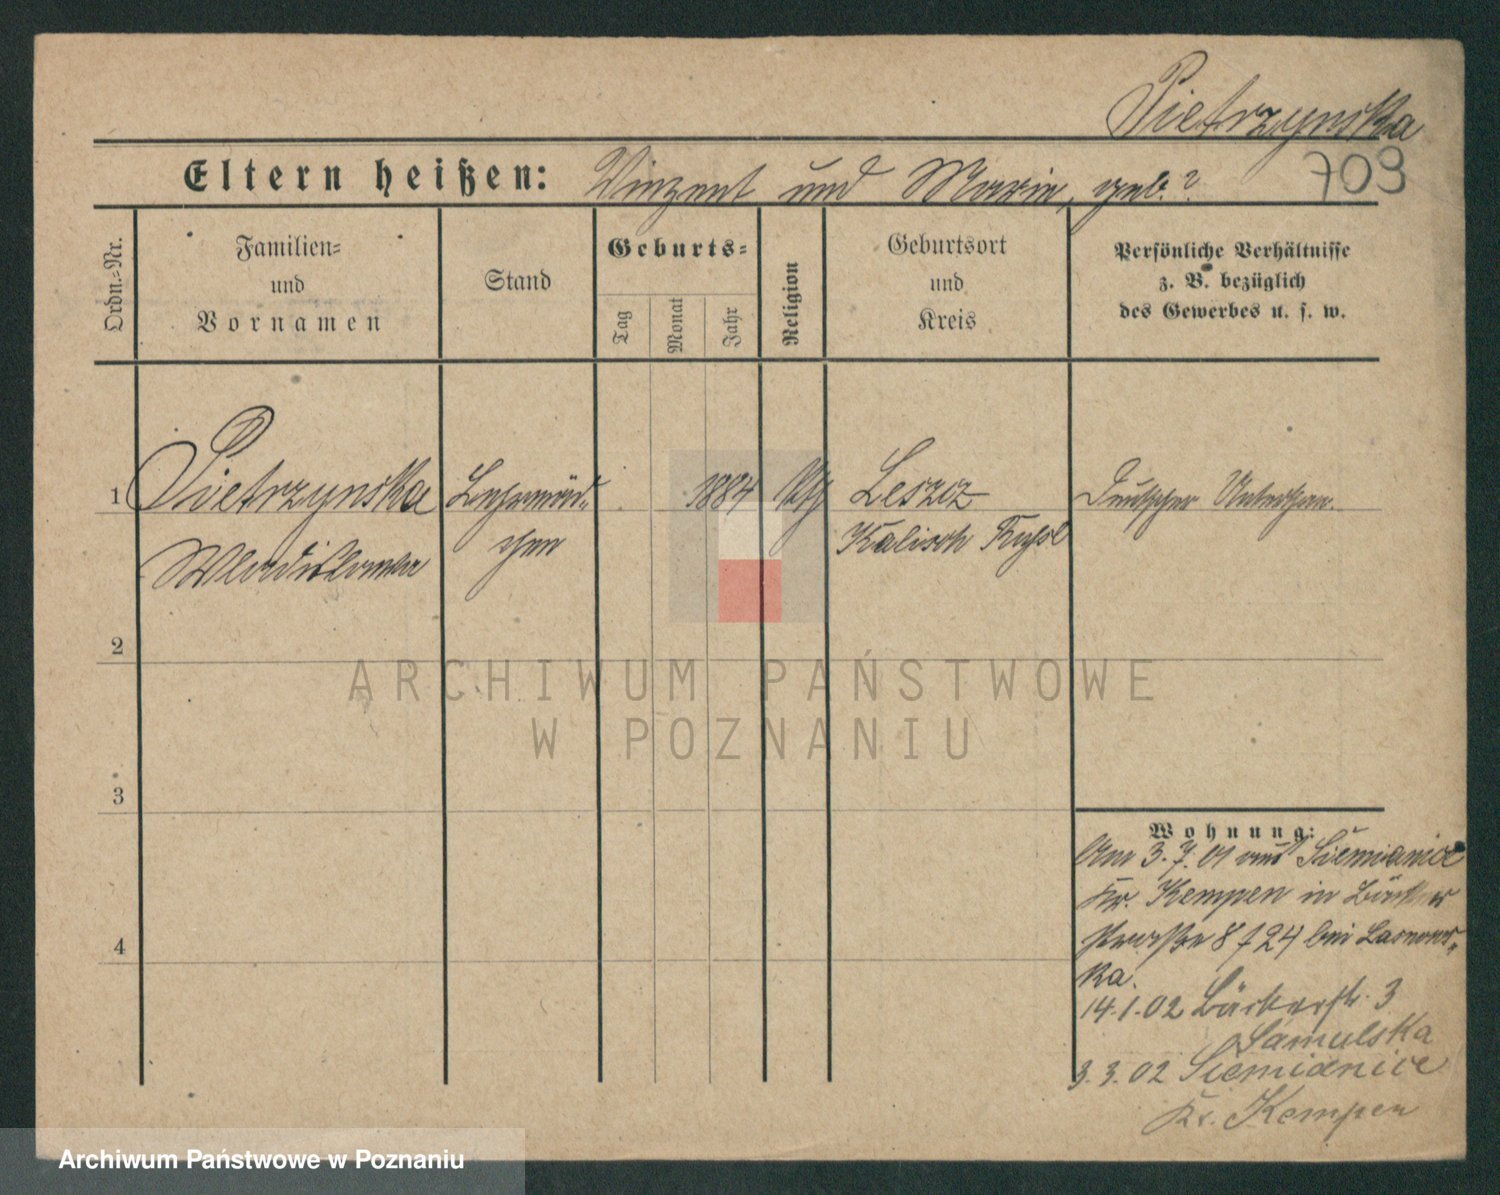 Pietrzynska
Eltern heißen: Vinzent und Marie, geb. ?
709
Ordn.-Nr.
Familien-
und
Vornamen
Stand
Geburts-
Tag
Monat
Jahr
Religion
Geburtsort
und
Kreis
Persönliche Verhältnisse
z. B. bezüglich
des Gewerbes u. s. w.
1 Pietrzynska 1884 Leszcz
Wladislawa Kalisch
2
3
4
Wohnung:
Am 3.7.01 aus Siemianice
Kr. Kempen in Bäcker
straße 8 f 24 bei
ka.
14.1.02 Bäckerstr. 3
Samulska
3.3.02 Siemianice
Kr. Kempen
ARCHIWUM PAŃSTWOWE
W POZNANIU
Archiwum Państwowe w Poznaniu